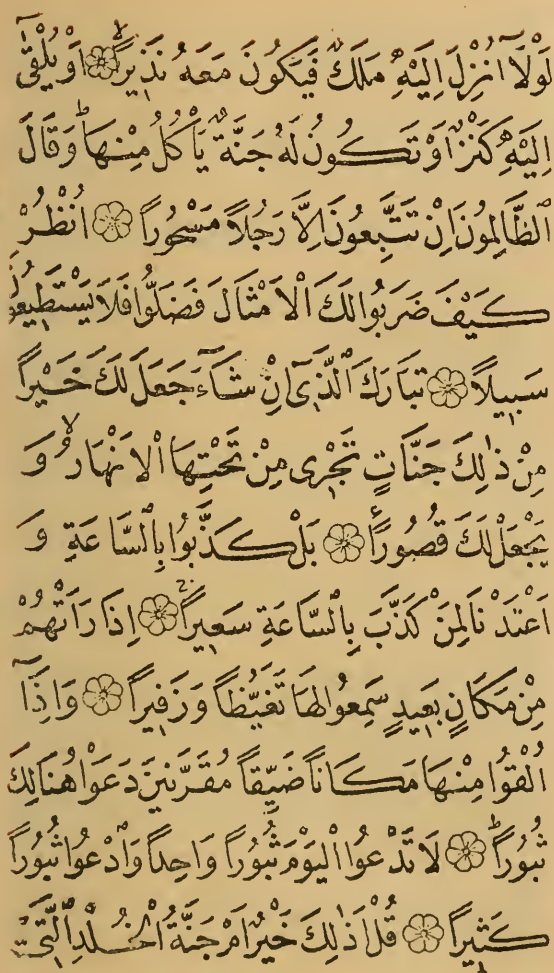 لَوْلَٓا اُنْزِلَ اِلَيْهِ مَلَكٌ فَيَكُونَ مَعَهُ نَذٖيراًۙ ۞ اَوْ يُلْقٰٓى
اِلَيْهِ كَنْزٌ اَوْ تَكُونُ لَهُ جَنَّةٌ يَأْكُلُ مِنْهَاۜ وَقَالَ
الظَّالِمُونَ اِنْ تَتَّبِعُونَ اِلَّا رَجُلاً مَسْحُوراً ۞ اُنْظُرْ
كَيْفَ ضَرَبُوا لَكَ الْاَمْثَالَ فَضَلُّوا فَلَا يَسْتَطٖيعُونَ
سَبٖيلاً ۞ تَبَارَكَ الَّذٖٓى اِنْ شَٓاءَ جَعَلَ لَكَ خَيْراً
مِنْ ذٰلِكَ جَنَّاتٍ تَجْرٖى مِنْ تَحْتِهَا الْاَنْهَارُۙ وَ
يَجْعَلْ لَكَ قُصُوراً ۞ بَلْ كَذَّبُوا بِالسَّاعَةِ وَ
اَعْتَدْنَا لِمَنْ كَذَّبَ بِالسَّاعَةِ سَعٖيراً ۞ اِذَا رَاَتْهُمْ
مِنْ مَكَانٍ بَعٖيدٍ سَمِعُوا لَهَا تَغَيُّظاً وَزَفٖيراً ۞ وَاِذَٓا
اُلْقُوا مِنْهَا مَكَاناً ضَيِّقاً مُقَرَّنٖينَ دَعَوْا هُنَالِكَ
ثُبُوراًۜ ۞ لَا تَدْعُوا الْيَوْمَ ثُبُوراً وَاحِداً وَادْعُوا ثُبُوراً
كَثٖيراً ۞ قُلْ اَذٰلِكَ خَيْرٌ اَمْ جَنَّةُ الْخُلْدِ الَّتٖى